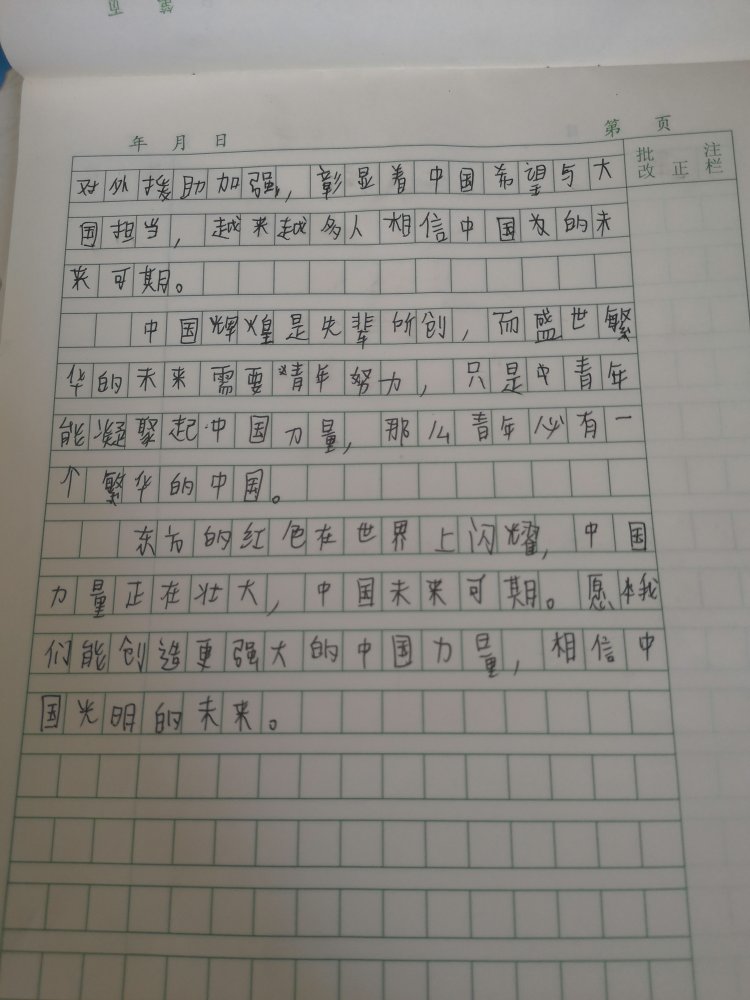 第 页
年 月 日
第 页
批改 正 注栏
对外援助加强，彰显着中国希望与大
国担当，越来越多人相信中国发的未
来可期。
中国辉煌是先辈所创，而盛世繁
华的未来需要青年努力，只是中青年
能凝聚起中国力量，那么青年必有一
个繁华的中国。
东方的红色在世界上闪耀，中国
力量正在壮大，中国未来可期。愿我
们能创造更强大的中国力量，相信中
国光明的未来。